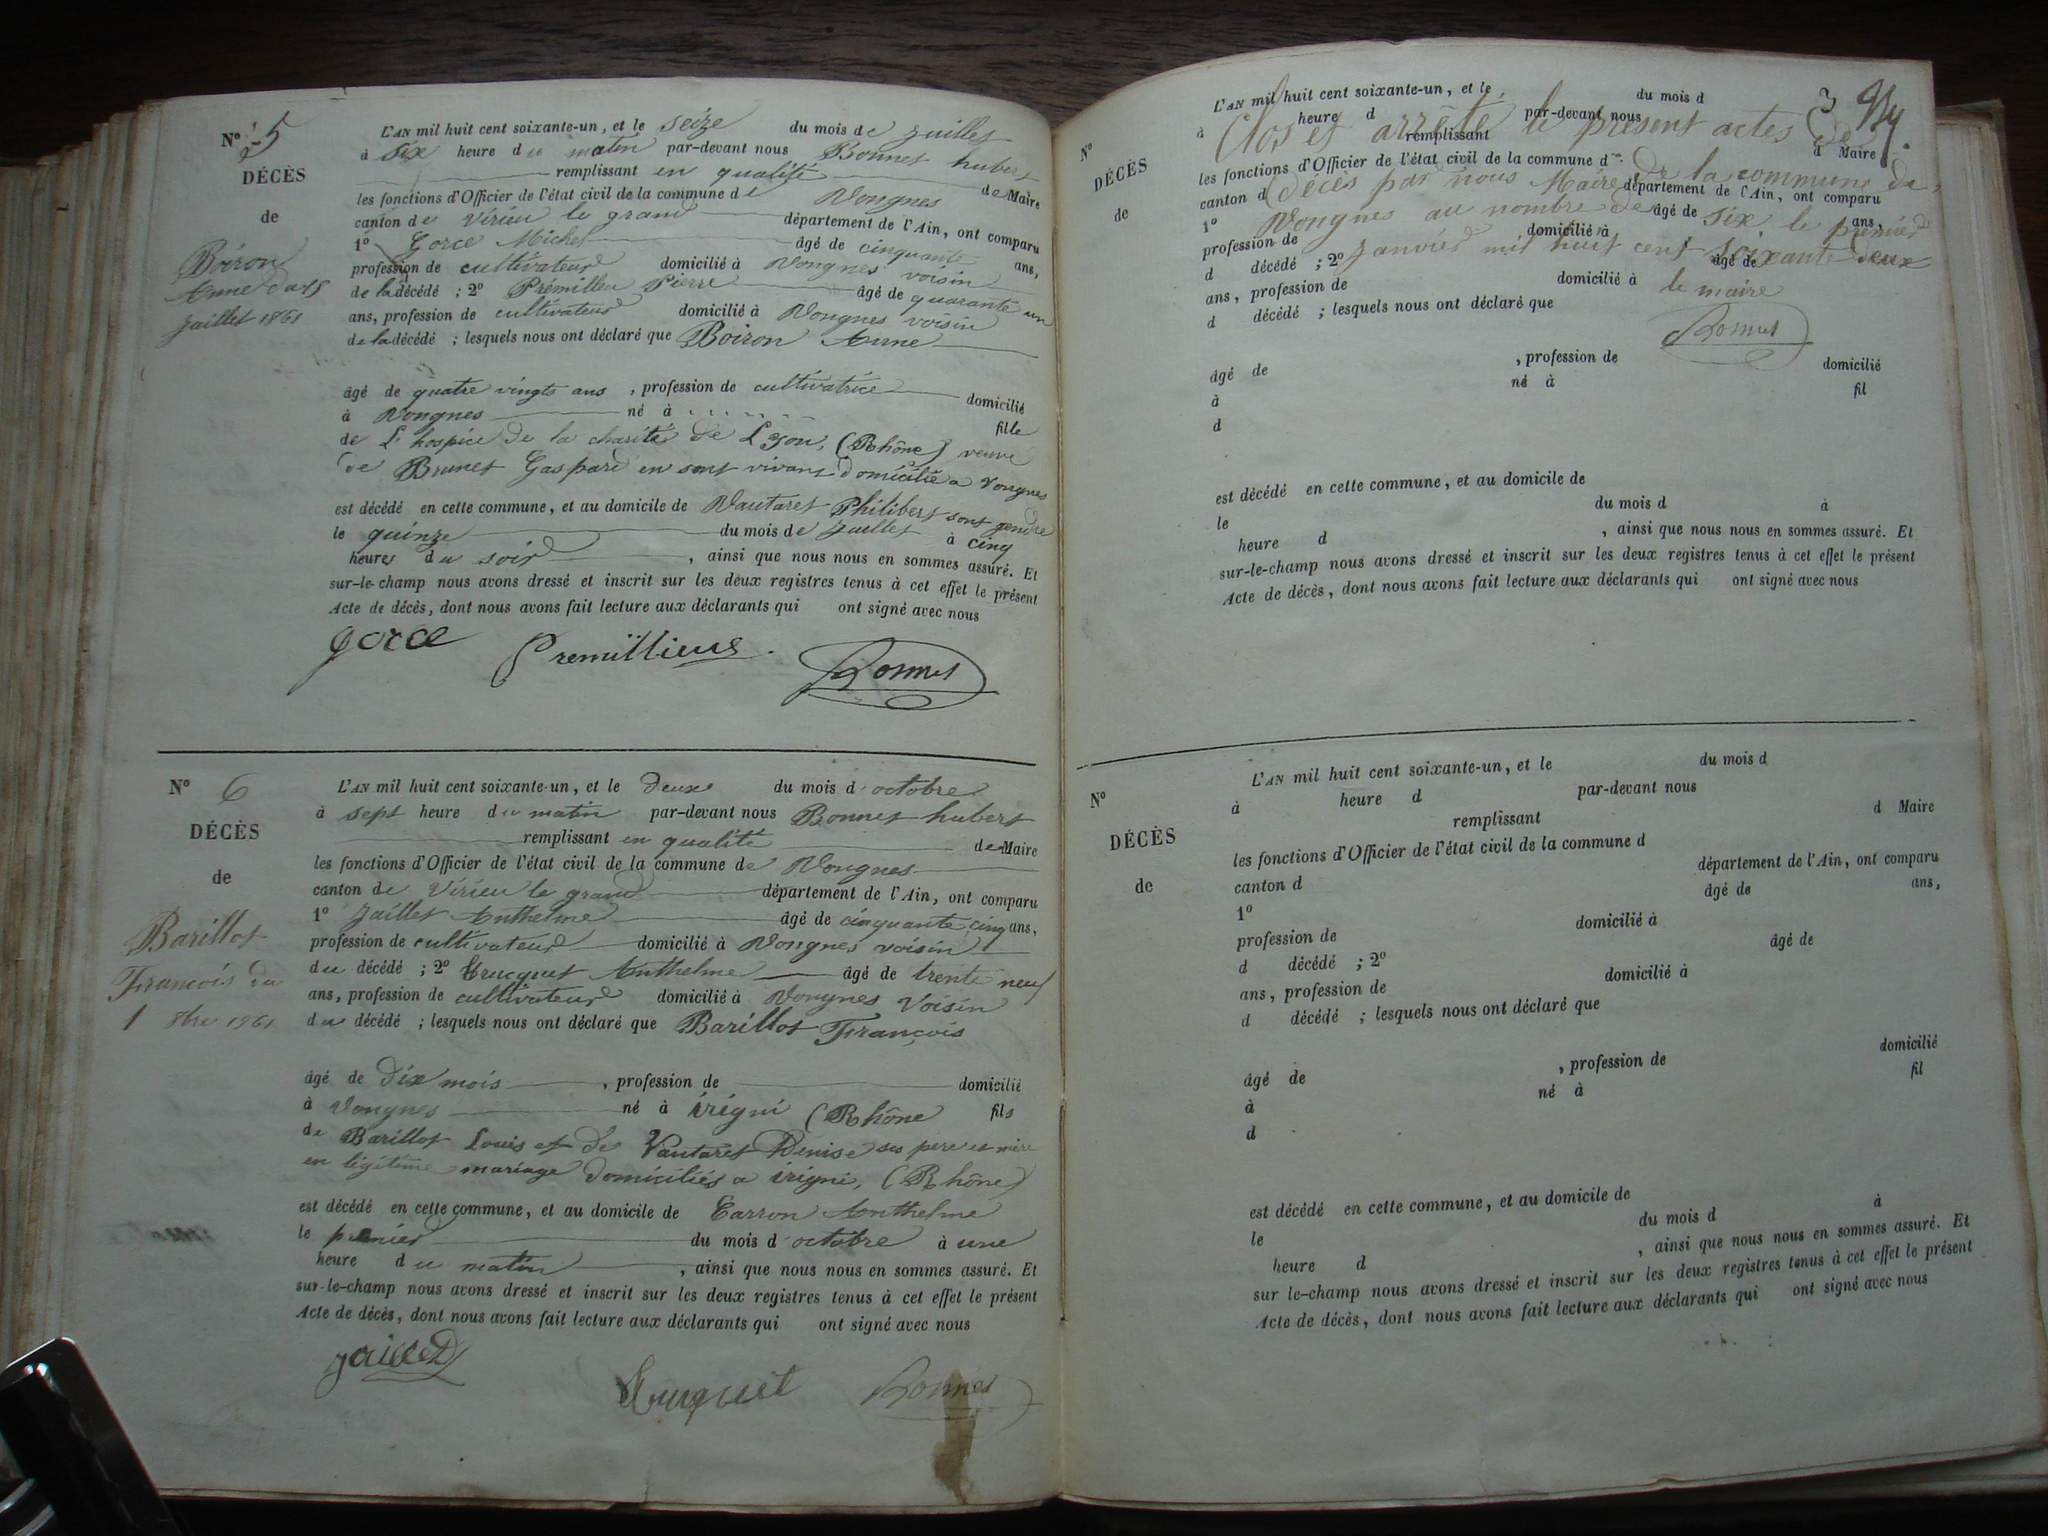 N° 5
DÉCÈS
de
Boiron
Anne du 15
Juillet 1861
L'AN mil huit cent soixante-un, et le seize du mois de Juillet
à six heure du matin par-devant nous Bonnet hubert
remplissant en qualité de Maire
les fonctions d'Officier de l'état civil de la commune de Vongnes
canton de Virieu le grand département de l'Ain, ont comparu
1° Gorce Michel âgé de cinquante ans,
profession de cultivateur domicilié à Vongnes voisin
de la décédé ; 2° Prémillieu Pierre âgé de quarante un
ans, profession de cultivateur domicilié à Vongnes voisin
de la décédé ; lesquels nous ont déclaré que Boiron Anne
âgé de quatre vingts ans , profession de cultivatrice domicilié
à Vongnes né à fille
de L'hospice de la charité de Lyon, (Rhône) veuve
de Brunet Gaspard en sont vivant domicilié a Vongnes
est décédé en cette commune, et au domicile de Vautaret Philibert sont gendre
le quinze du mois de Juillet à cinq
heures du soir , ainsi que nous nous en sommes assuré. Et
sur-le-champ nous avons dressé et inscrit sur les deux registres tenus à cet effet le présent
Acte de décès, dont nous avons fait lecture aux déclarants qui ont signé avec nous
gorce Premillieux Bonnet
N° 6
DÉCÈS
de
Barillot
François du
1 8bre 1861
L'AN mil huit cent soixante-un, et le deux du mois d'octobre
à sept heure du matin par-devant nous Bonnet hubert
remplissant en qualité de Maire
les fonctions d'Officier de l'état civil de la commune de Vongnes
canton de Virieu le grand département de l'Ain, ont comparu
1° Jaillet Anthelme âgé de cinquante cinq ans,
profession de cultivateur domicilié à Vongnes voisin
du décédé ; 2° Trucquet Anthelme âgé de trente neuf
ans, profession de cultivateur domicilié à Vongnes Voisin
du décédé ; lesquels nous ont déclaré que Barillot François
âgé de dix mois , profession de domicilié
à Vongnes né à irigni (Rhône fils
de Barillot Louis et de Vautaret Denise ses pere et mère
en légitime mariage domiciliés a irigni, (Rhône)
est décédé en cette commune, et au domicile de Carron Anthelme
le premier du mois d'octobre à une
heure du matin , ainsi que nous nous en sommes assuré. Et
sur-le-champ nous avons dressé et inscrit sur les deux registres tenus à cet effet le présent
Acte de décès, dont nous avons fait lecture aux déclarants qui ont signé avec nous
jaillet Truquet Bonnet
3
N°
DÉCÈS
de
L'AN mil huit cent soixante-un, et le du mois d
à heure d par-devant nous
Clos et arrêté le présent actes de
remplissant d Maire
les fonctions d'Officier de l'état civil de la commune d
décès par nous Maire de la commune de
canton d département de l'Ain, ont comparu
1° âgé de ans,
Vongnes au nombre de six le premier
profession de domicilié à
janvier mil huit cent soixante deux
d décédé ; 2° âgé de
ans, profession de domicilié à
le maire
d décédé ; lesquels nous ont déclaré que
Bonnet
âgé de , profession de domicilié
à né à fil
d
est décédé en cette commune, et au domicile de
le du mois d à
heure d , ainsi que nous nous en sommes assuré. Et
sur-le-champ nous avons dressé et inscrit sur les deux registres tenus à cet effet le présent
Acte de décès, dont nous avons fait lecture aux déclarants qui ont signé avec nous
N°
DÉCÈS
de
L'AN mil huit cent soixante-un, et le du mois d
à heure d par-devant nous
remplissant d Maire
les fonctions d'Officier de l'état civil de la commune d
canton d département de l'Ain, ont comparu
1° âgé de ans,
profession de domicilié à
d décédé ; 2° âgé de
ans, profession de domicilié à
d décédé ; lesquels nous ont déclaré que
âgé de , profession de domicilié
à né à fil
d
est décédé en cette commune, et au domicile de
le du mois d à
heure d , ainsi que nous nous en sommes assuré. Et
sur le-champ nous avons dressé et inscrit sur les deux registres tenus à cet effet le présent
Acte de décès, dont nous avons fait lecture aux déclarants qui ont signé avec nous